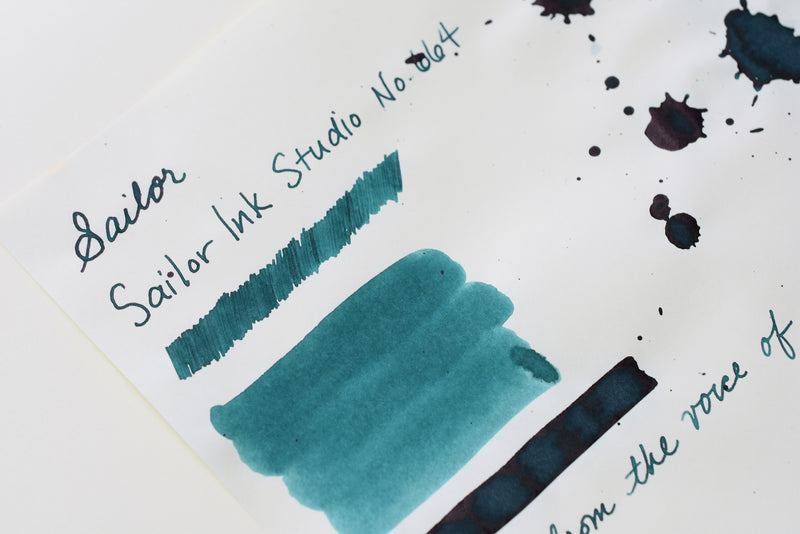 Sailor
Sailor Ink Studio No. 664
from the voice of